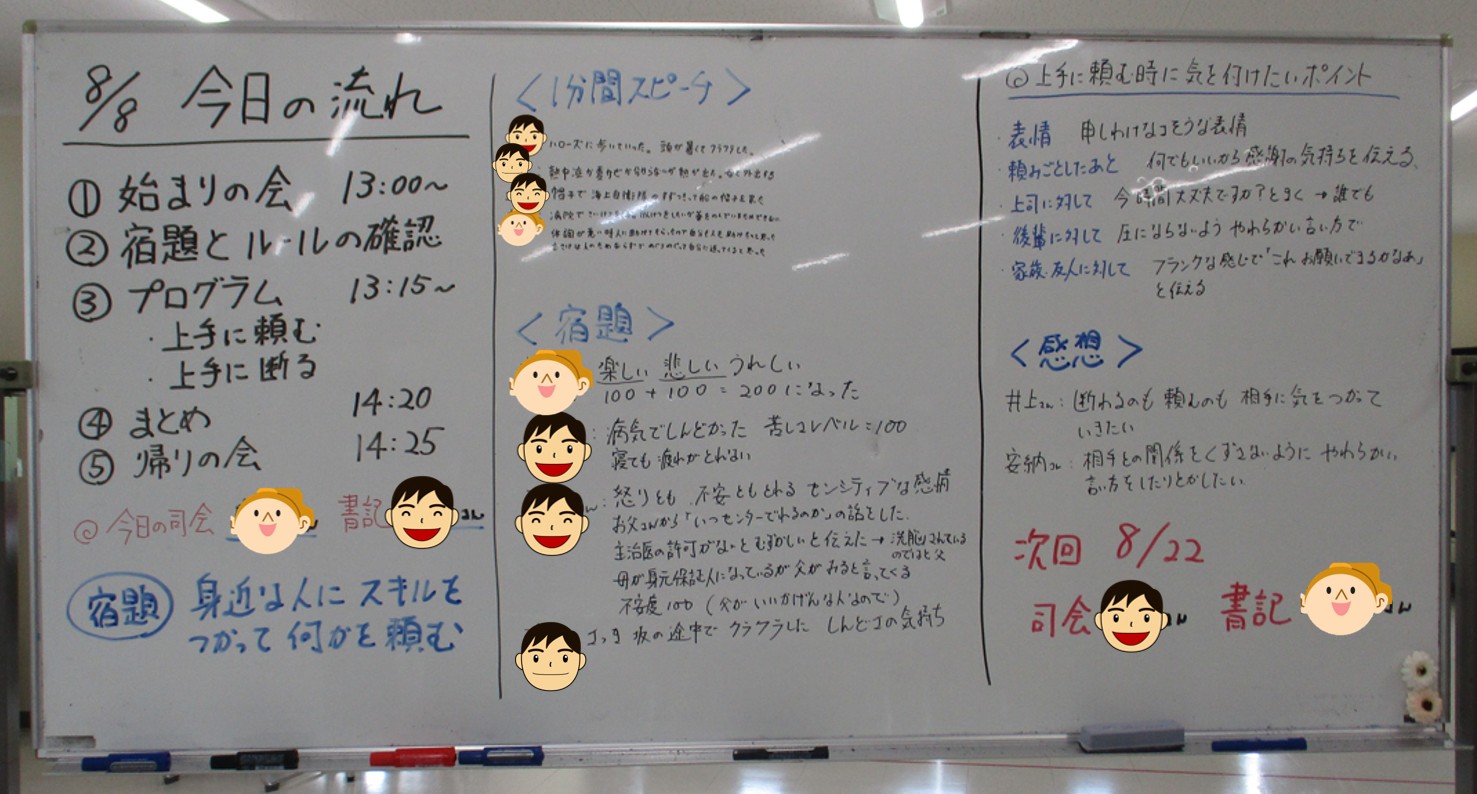 8/8 今日の流れ
① 始まりの会 13:00~
② 宿題とルールの確認
③ プログラム 13:15~
・上手に頼む
・上手に断る
④ まとめ 14:20
⑤ 帰りの会 14:25
◎今日の司会 ん 書記 さん
宿題 身近な人にスキルを
つかって何かを頼む
<1分間スピーチ>
ハローズに歩いていった。 頭が暑くてクラクラした。
帽子で 海上自衛隊の
<宿題>
楽しい 悲しい うれしい
100 + 100 = 200になった
: 病気でしんどかった 苦しさレベル=100
寝ても疲れがとれない
ん: 怒りとも 不安ともとれる センシティブな感情
お父さんから「いつセンターでれるのか」の話をした。
主治医の許可がないとむずかしいと伝えた→洗脳されている
のではと父
母が身元保証人になっているが父がみると言ってくる
不安度100 (父がいいかげんな人なので)
さっき 坂の途中で クラクラした しんどさの気持ち
◎上手に頼む時に気を付けたいポイント
・表情 申しわけなさそうな表情
・頼みごとしたあと 何でもいいから感謝の気持ちを伝える、
・上司に対して 今時間大丈夫ですか?ときく → 誰でも
・後輩に対して 圧にならないよう やわらかい言い方で
・家族・友人に対して フランクな感じで「これお願いできるかなぁ」
と伝える
<感想>
井上さん: 断わるのも 頼むのも 相手に気をつかって
いきたい
安納さん: 相手との関係をくずさないように やわらかい
言い方をしたりとかしたい。
次回 8/22
司会 ん 書記 さん